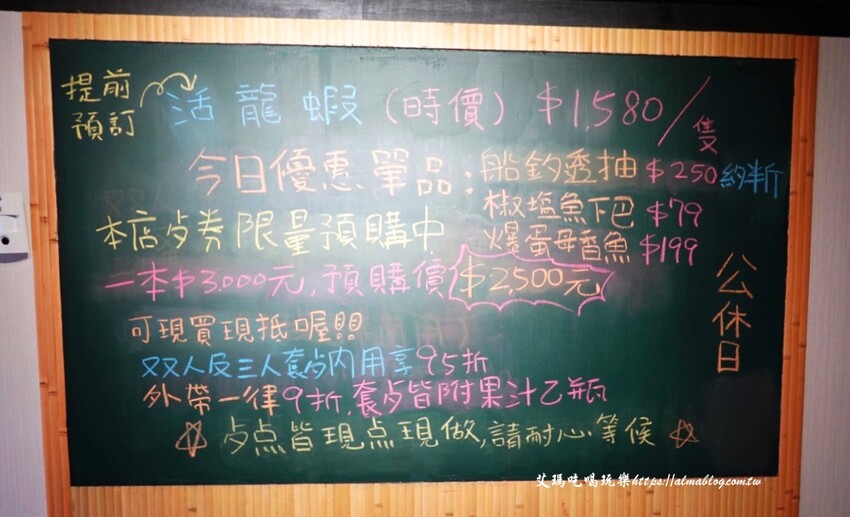 提前
預訂
活龍蝦(時價) $1,580/隻
今日優惠單品:船釣透抽 $250 約半斤
椒塩魚下巴 $79
爆蛋母香魚 $199
本店歺券限量預購中
一本$3,000元,預購價 $2,500元
可現買現抵喔!!!
双人及三人套歺內用享95折
外帶一律9折,套歺皆附果汁乙瓶
☆歺点皆現点現做,請耐心等候☆
公休日
艾瑪吃喝玩樂https://almablog.com.tw